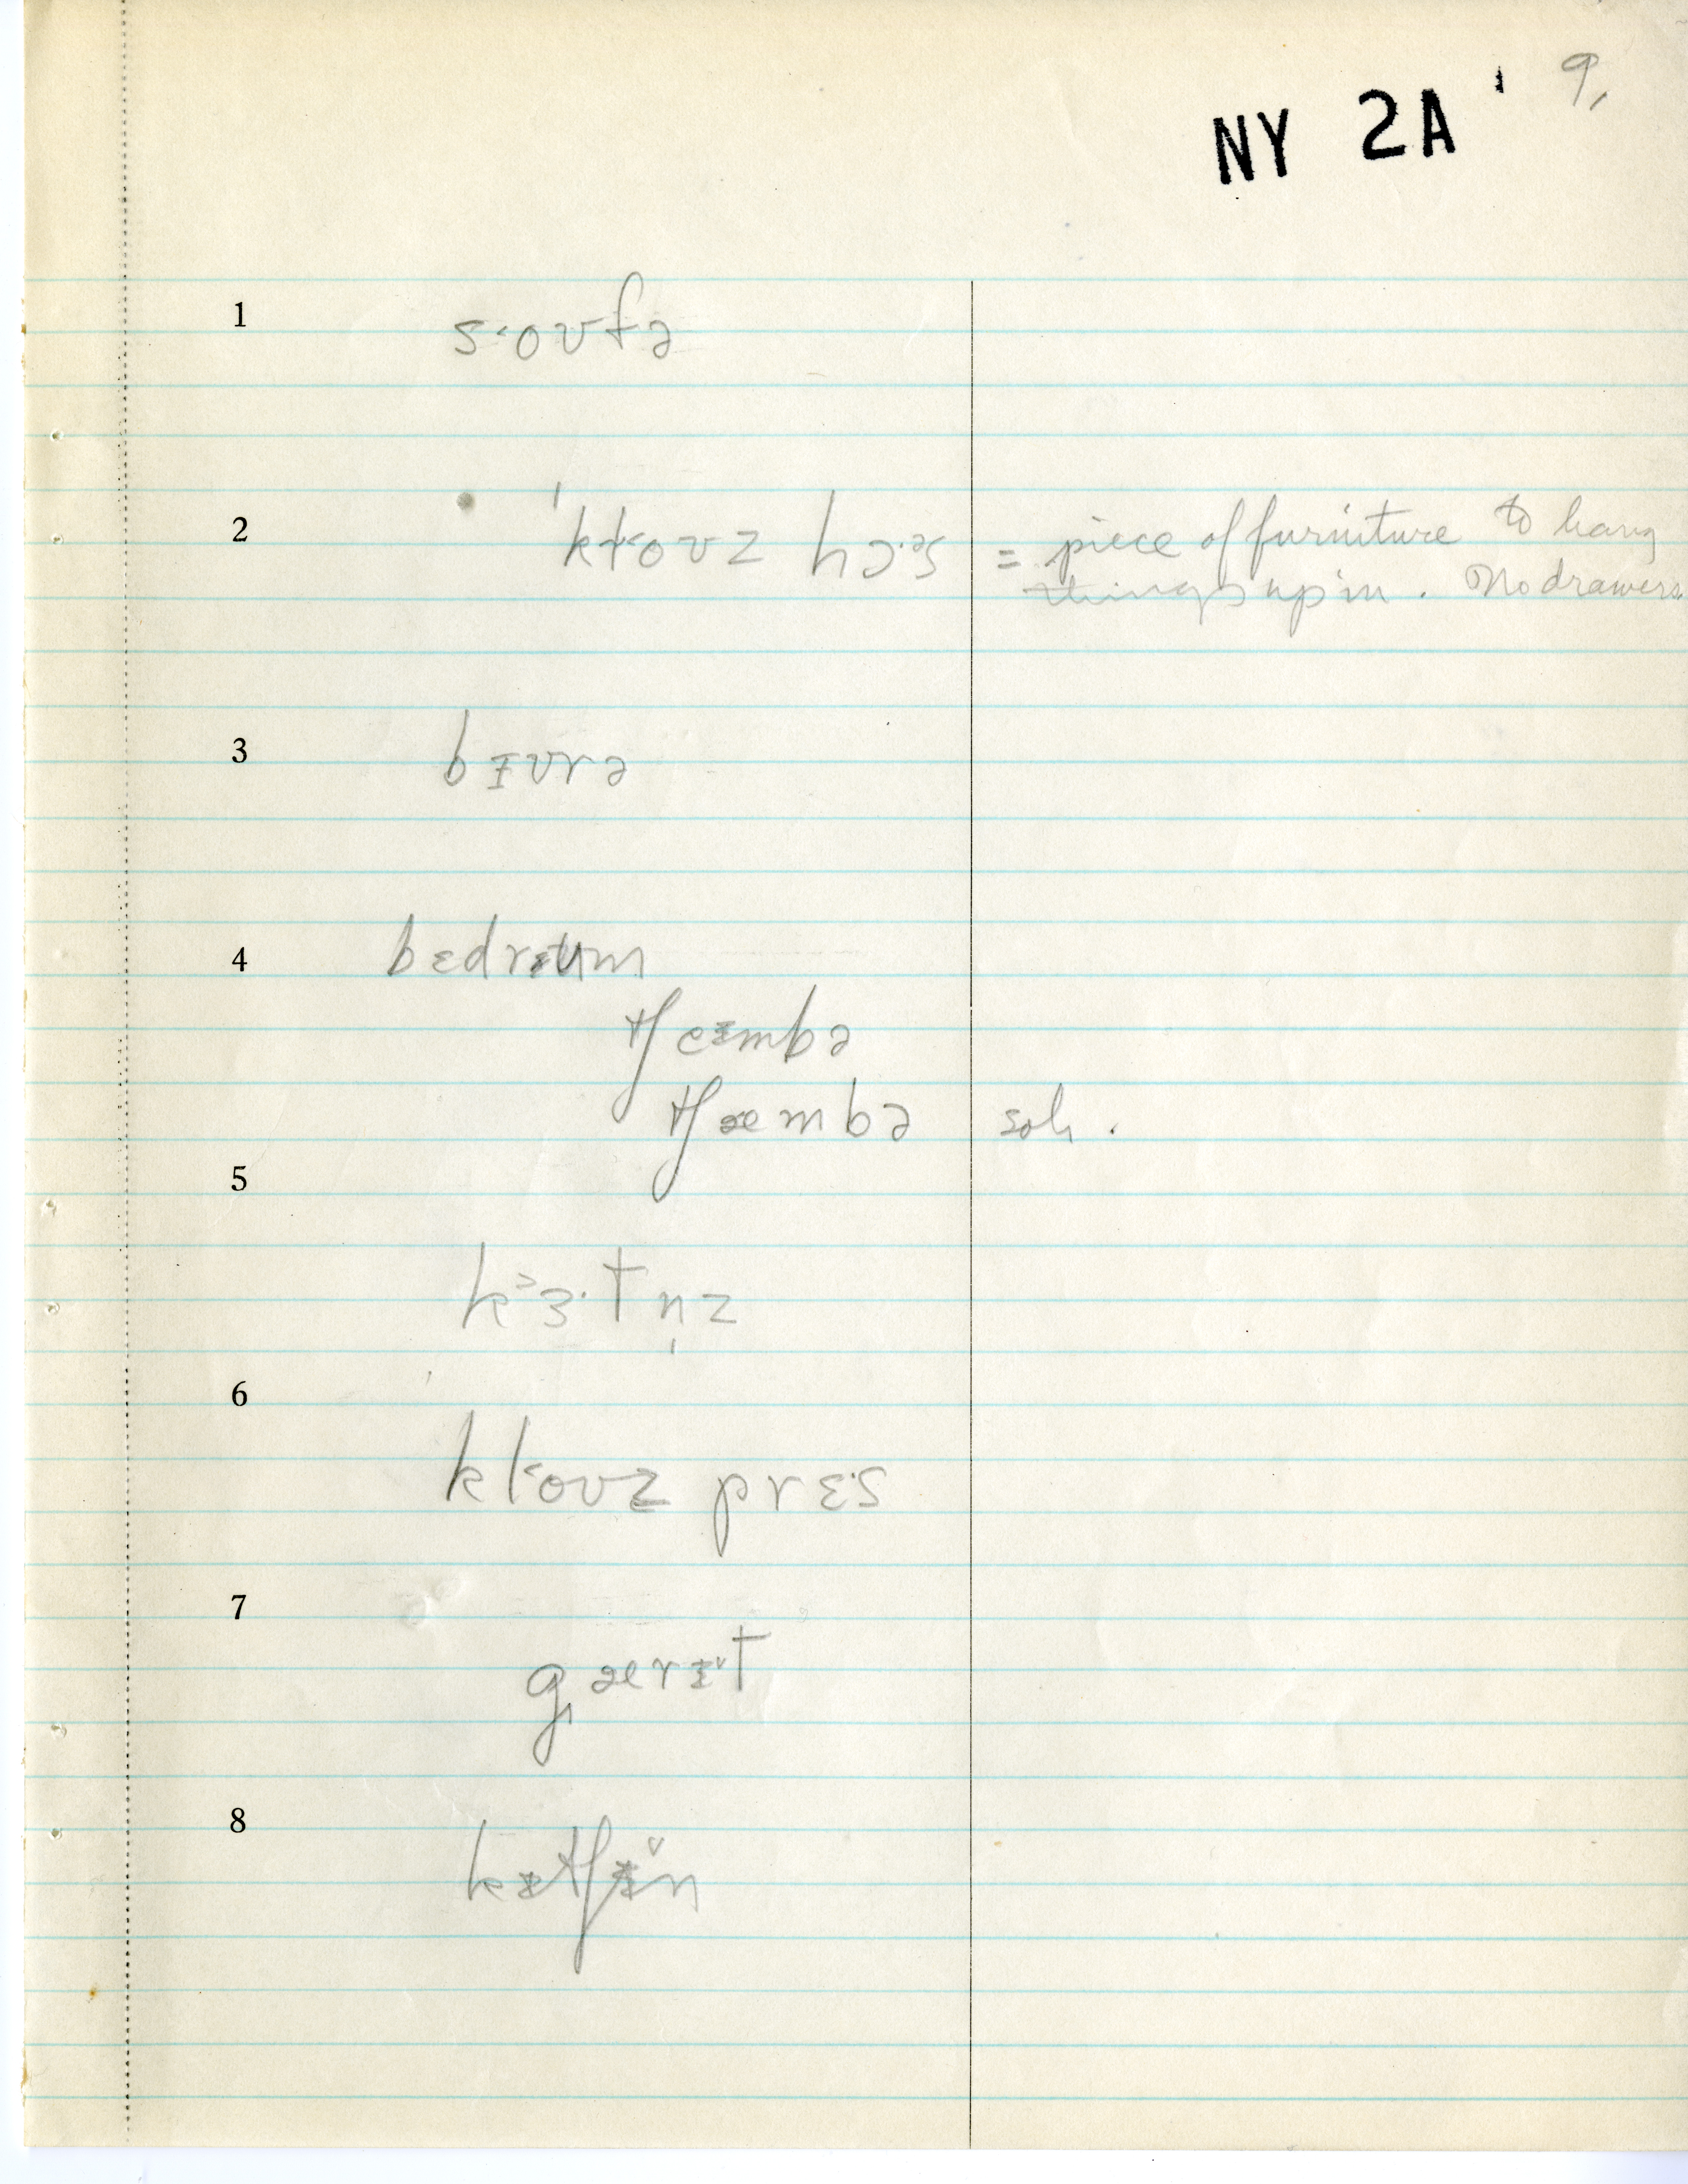 NY 2A ' 9,
1 s˂oʊfə
2 'kɫ˂oʊz hɔ·ᵊs = piece of furniture to hang
things up in. No drawers.
3 bɪʊrə
4 bɛdrʉm
tʃeɪmbə
tʃæmbə soh.
5
k˃ɜ·tn̩z
6
kɫ˂oʊz prɛ·s
7
gærɪ˅t
8
kɪtʃɪ˅n